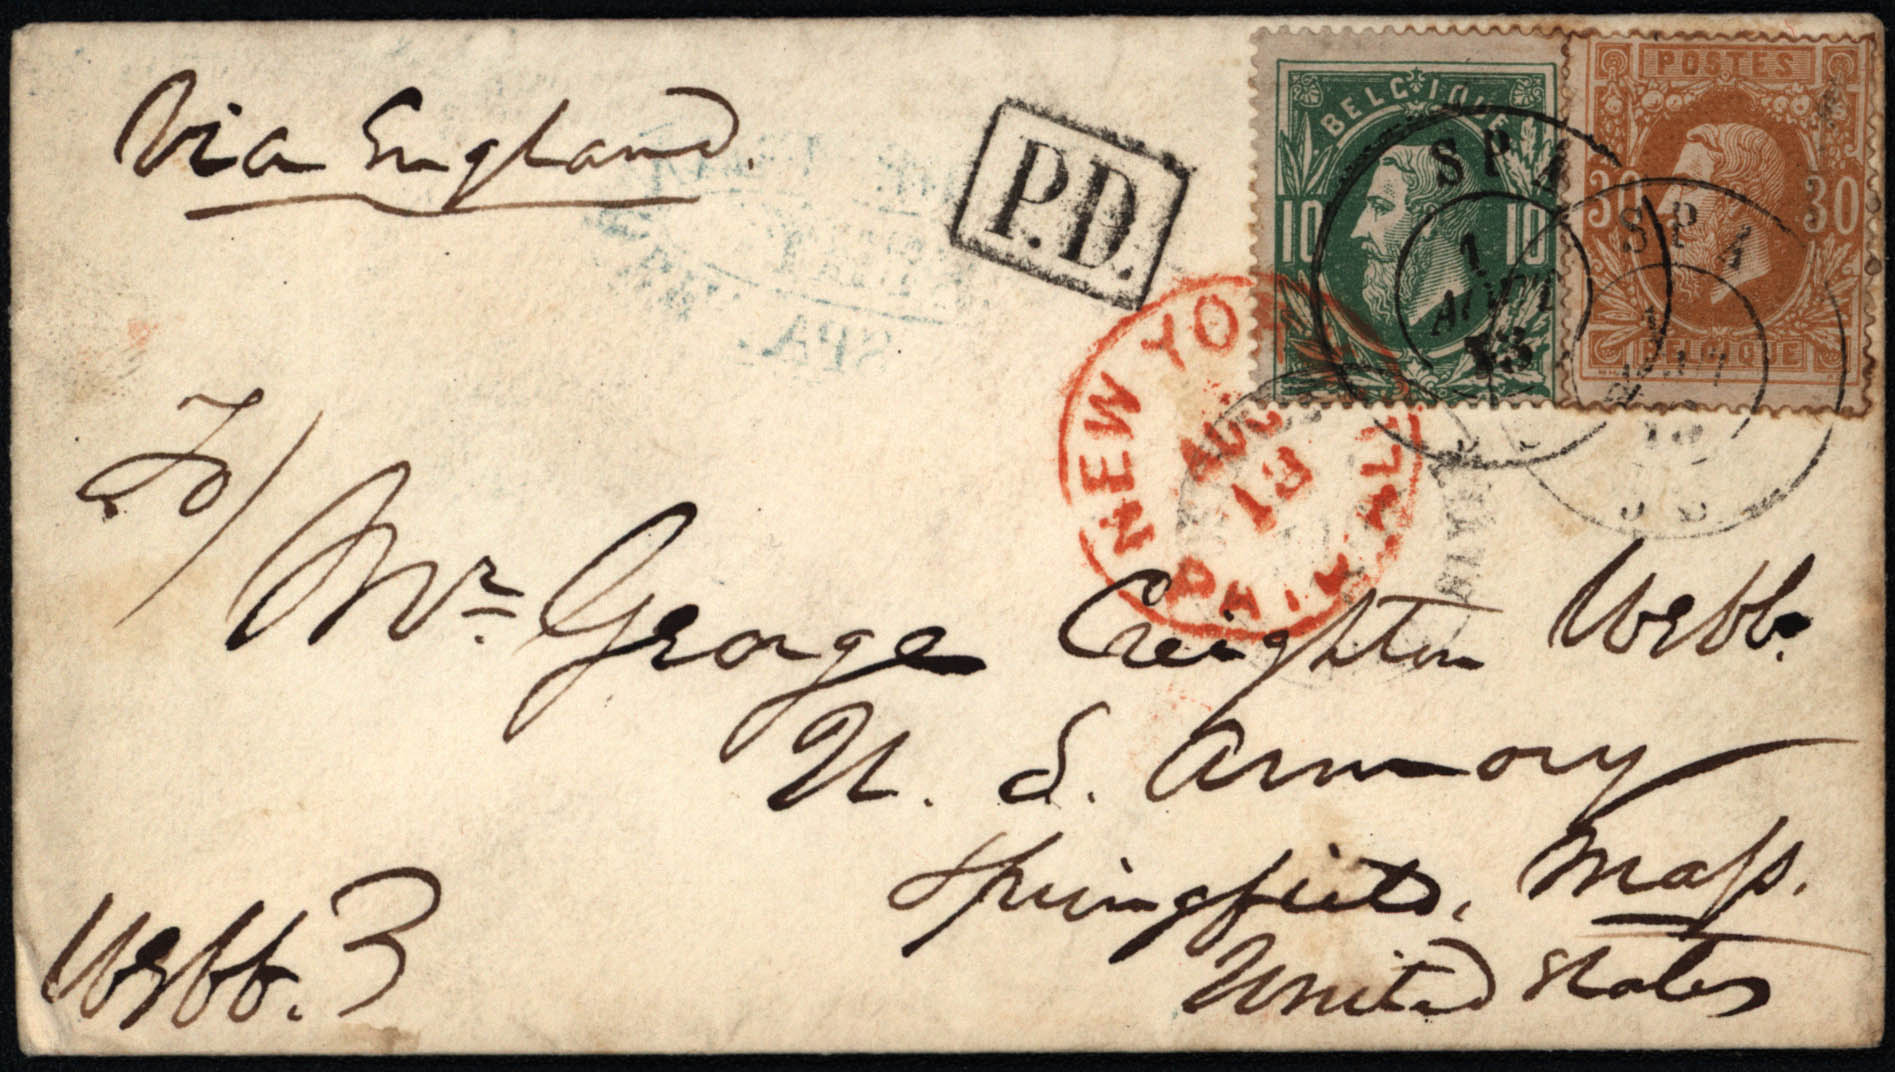 Via England.
P.D.
BELGIQUE
10 10
SPA
1
AOUT
POSTES
30 30
SPA
BELGIQUE
NEW YORK
AUG
13
PAID ALL
To/
Mr. George Creighton Webb.
U. S. Armory
Springfield, Mass.
United States
Webb. 3
SPA.